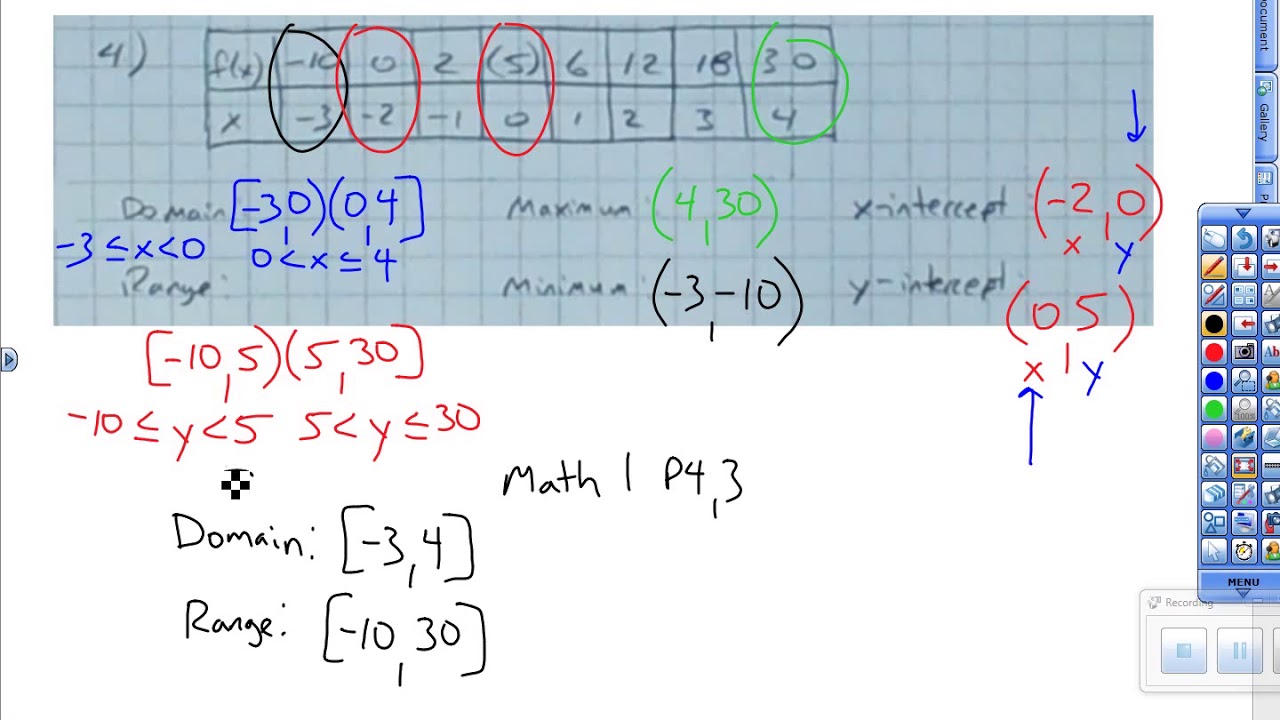 4)
f(x) -10 0 2 (5) 6 12 18 30
x -3 -2 -1 0 1 2 3 4
Domain [-3,0)(0,4] Maximum (4,30) x-intercept (-2,0)
x y
-3 ≤ x < 0 0 < x ≤ 4
Range: Minimum (-3,-10) y-intercept (0,5)
x y
[-10,5)(5,30]
-10 ≤ y < 5 5 < y ≤ 30
Math 1 P4,3
Domain: [-3,4]
Range: [-10,30]
ocument
Gallery
P
Ab
100%
MENU
Recording